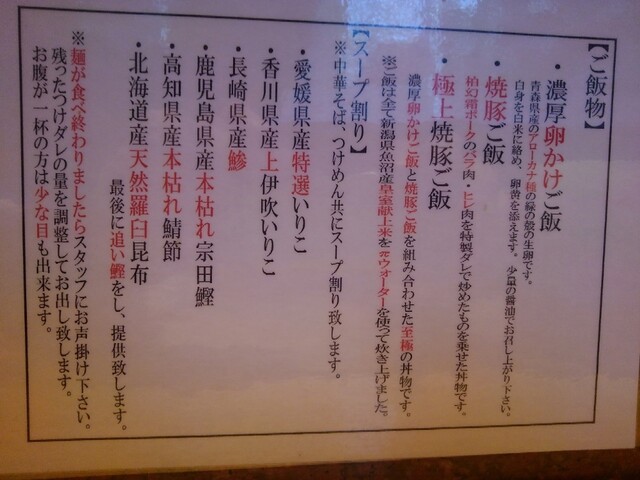 【ご飯物】
・濃厚卵かけご飯
青森県産のアローカナ種の緑の殻の生卵です。
白身を白米に絡め、卵黄を添えます。少量の醤油でお召し上がり下さい。
・焼豚ご飯
柏幻霜ポークのバラ肉・ヒレ肉を特製ダレで炒めたものを乗せた丼物です。
・極上焼豚ご飯
濃厚卵かけご飯と焼豚ご飯を組み合わせた至極の丼物です。
※ご飯は全て新潟県魚沼産皇室献上米をπウォーターを使って炊き上げました。
【スープ割り】
※中華そば、つけめん共にスープ割り致します。
・愛媛県産特選いりこ
・香川県産上伊吹いりこ
・長崎県産鯵
・鹿児島県産本枯れ宗田鰹
・高知県産本枯れ鯖節
・北海道産天然羅臼昆布
最後に追い鰹をし、提供致します。
※麺が食べ終わりましたらスタッフにお声掛け下さい。
残ったつけダレの量を調整してお出し致します。
お腹が一杯の方は少な目も出来ます。